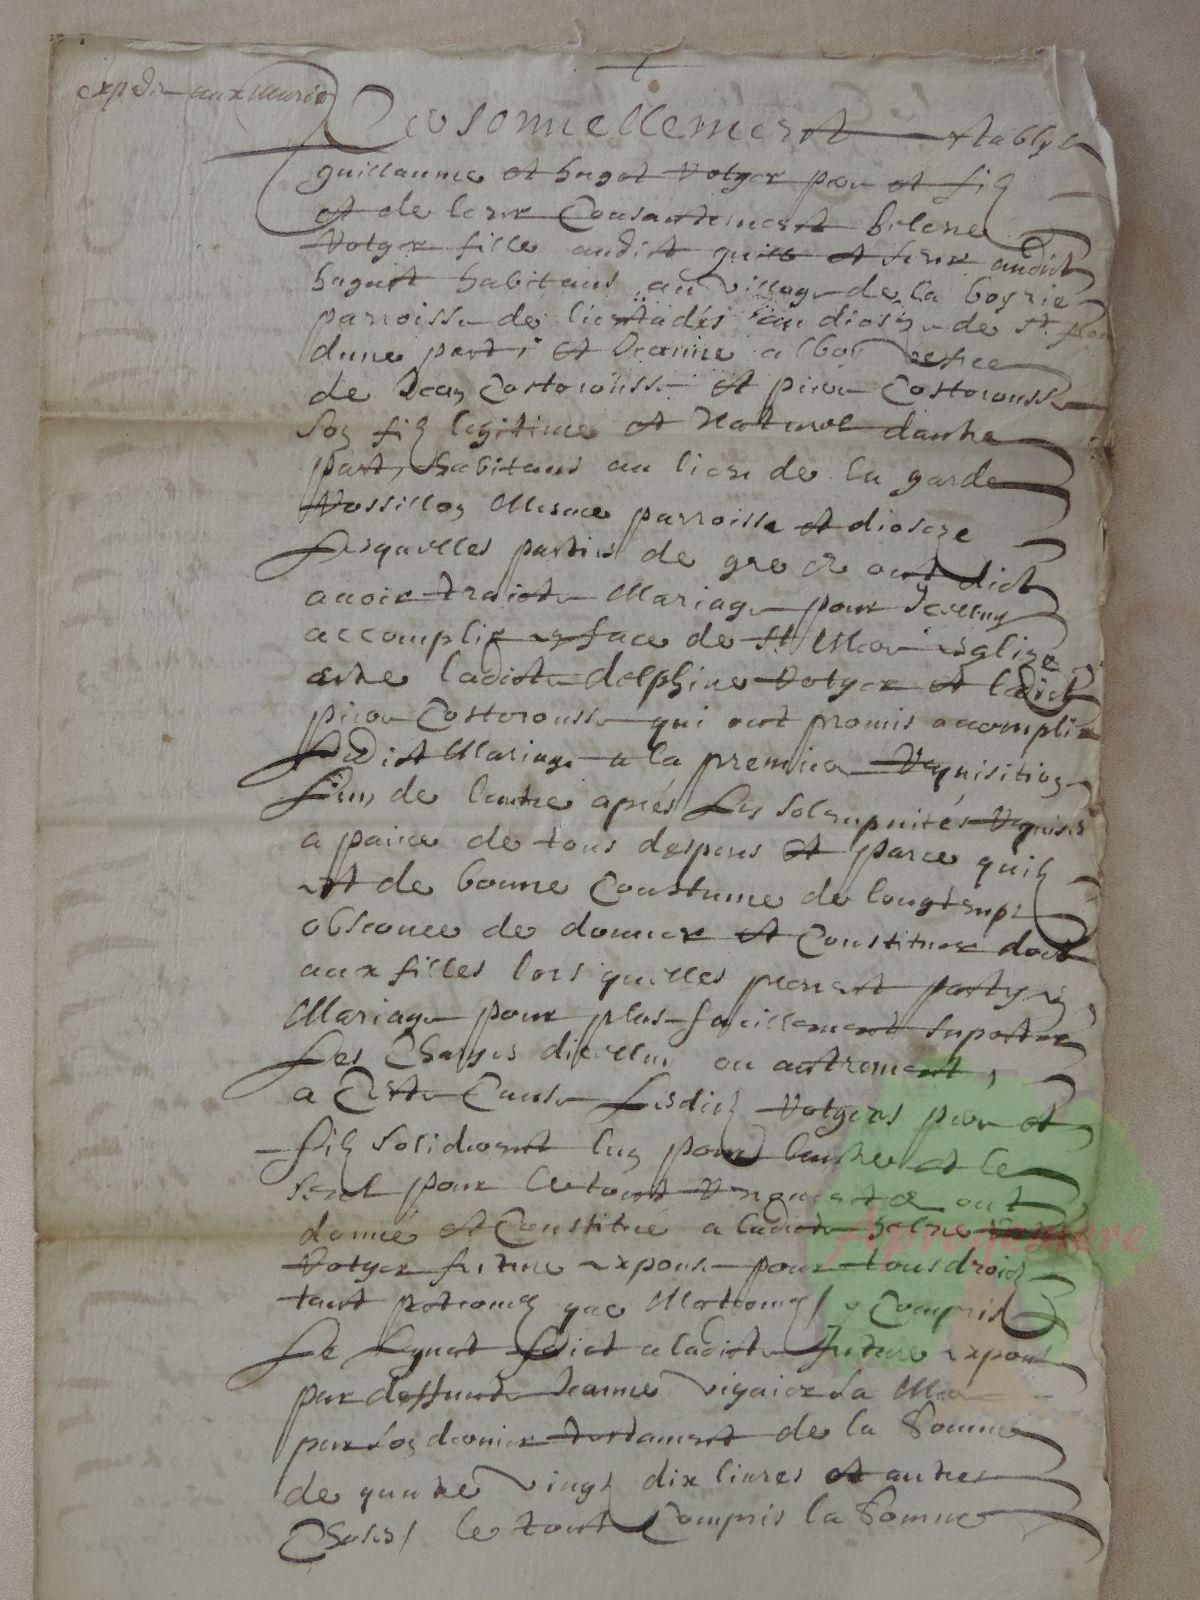 expedie aux mariés
Personnellement establys
guillaume et hugot Votger pere et filz
et de leur Consantement helene
Votger fille audict guille et seur audict
hugot habitans au village de la boyrie
parroisse de lieutadés au diocize de St flour
dune part, et Jeanne albou vefve
de Jean Costerousse et pierre Costerousse
son filz legitime et naturel dautre
part, habitans au lieu de la garde
Mesme parroisse et dioceze
Lesquelles parties de gre &ª ont dict
avoir traicte Mariage pour Icelluy
accomplir en face de Ste Mere esglize
entre ladicte delphine Votger et ledict
pierre Costerousse qui ont promis acomplir
Ledict Mariage a la premiere Requisition
Lun de lautre aprés Les solempnités Requises
a paine de tous despens et parce quil
est de bonne Coustume de longtemps
observee de donner et Constituer dot
aux filles lors quelles prenent party en
Mariage pour plus facillement suporter
Les Charges dicelluy ou autrement,
a Cette Cause Lesdicz Votgers pere et
filz solidement lun pour lautre et le
seul pour le tout &ª ont
donné et Constitué a ladicte helene
Votger future expouse pour tous droicz
tant paternelz que Maternelz / y Compris
Le Legat faict a ladicte future expouse
par deffuncte Jeanne vigaier sa Mere
par son dernier testament de la Somme
de quatre vingz dix livres et autres
Choses / le tout Compris la Somme
Aprogemere